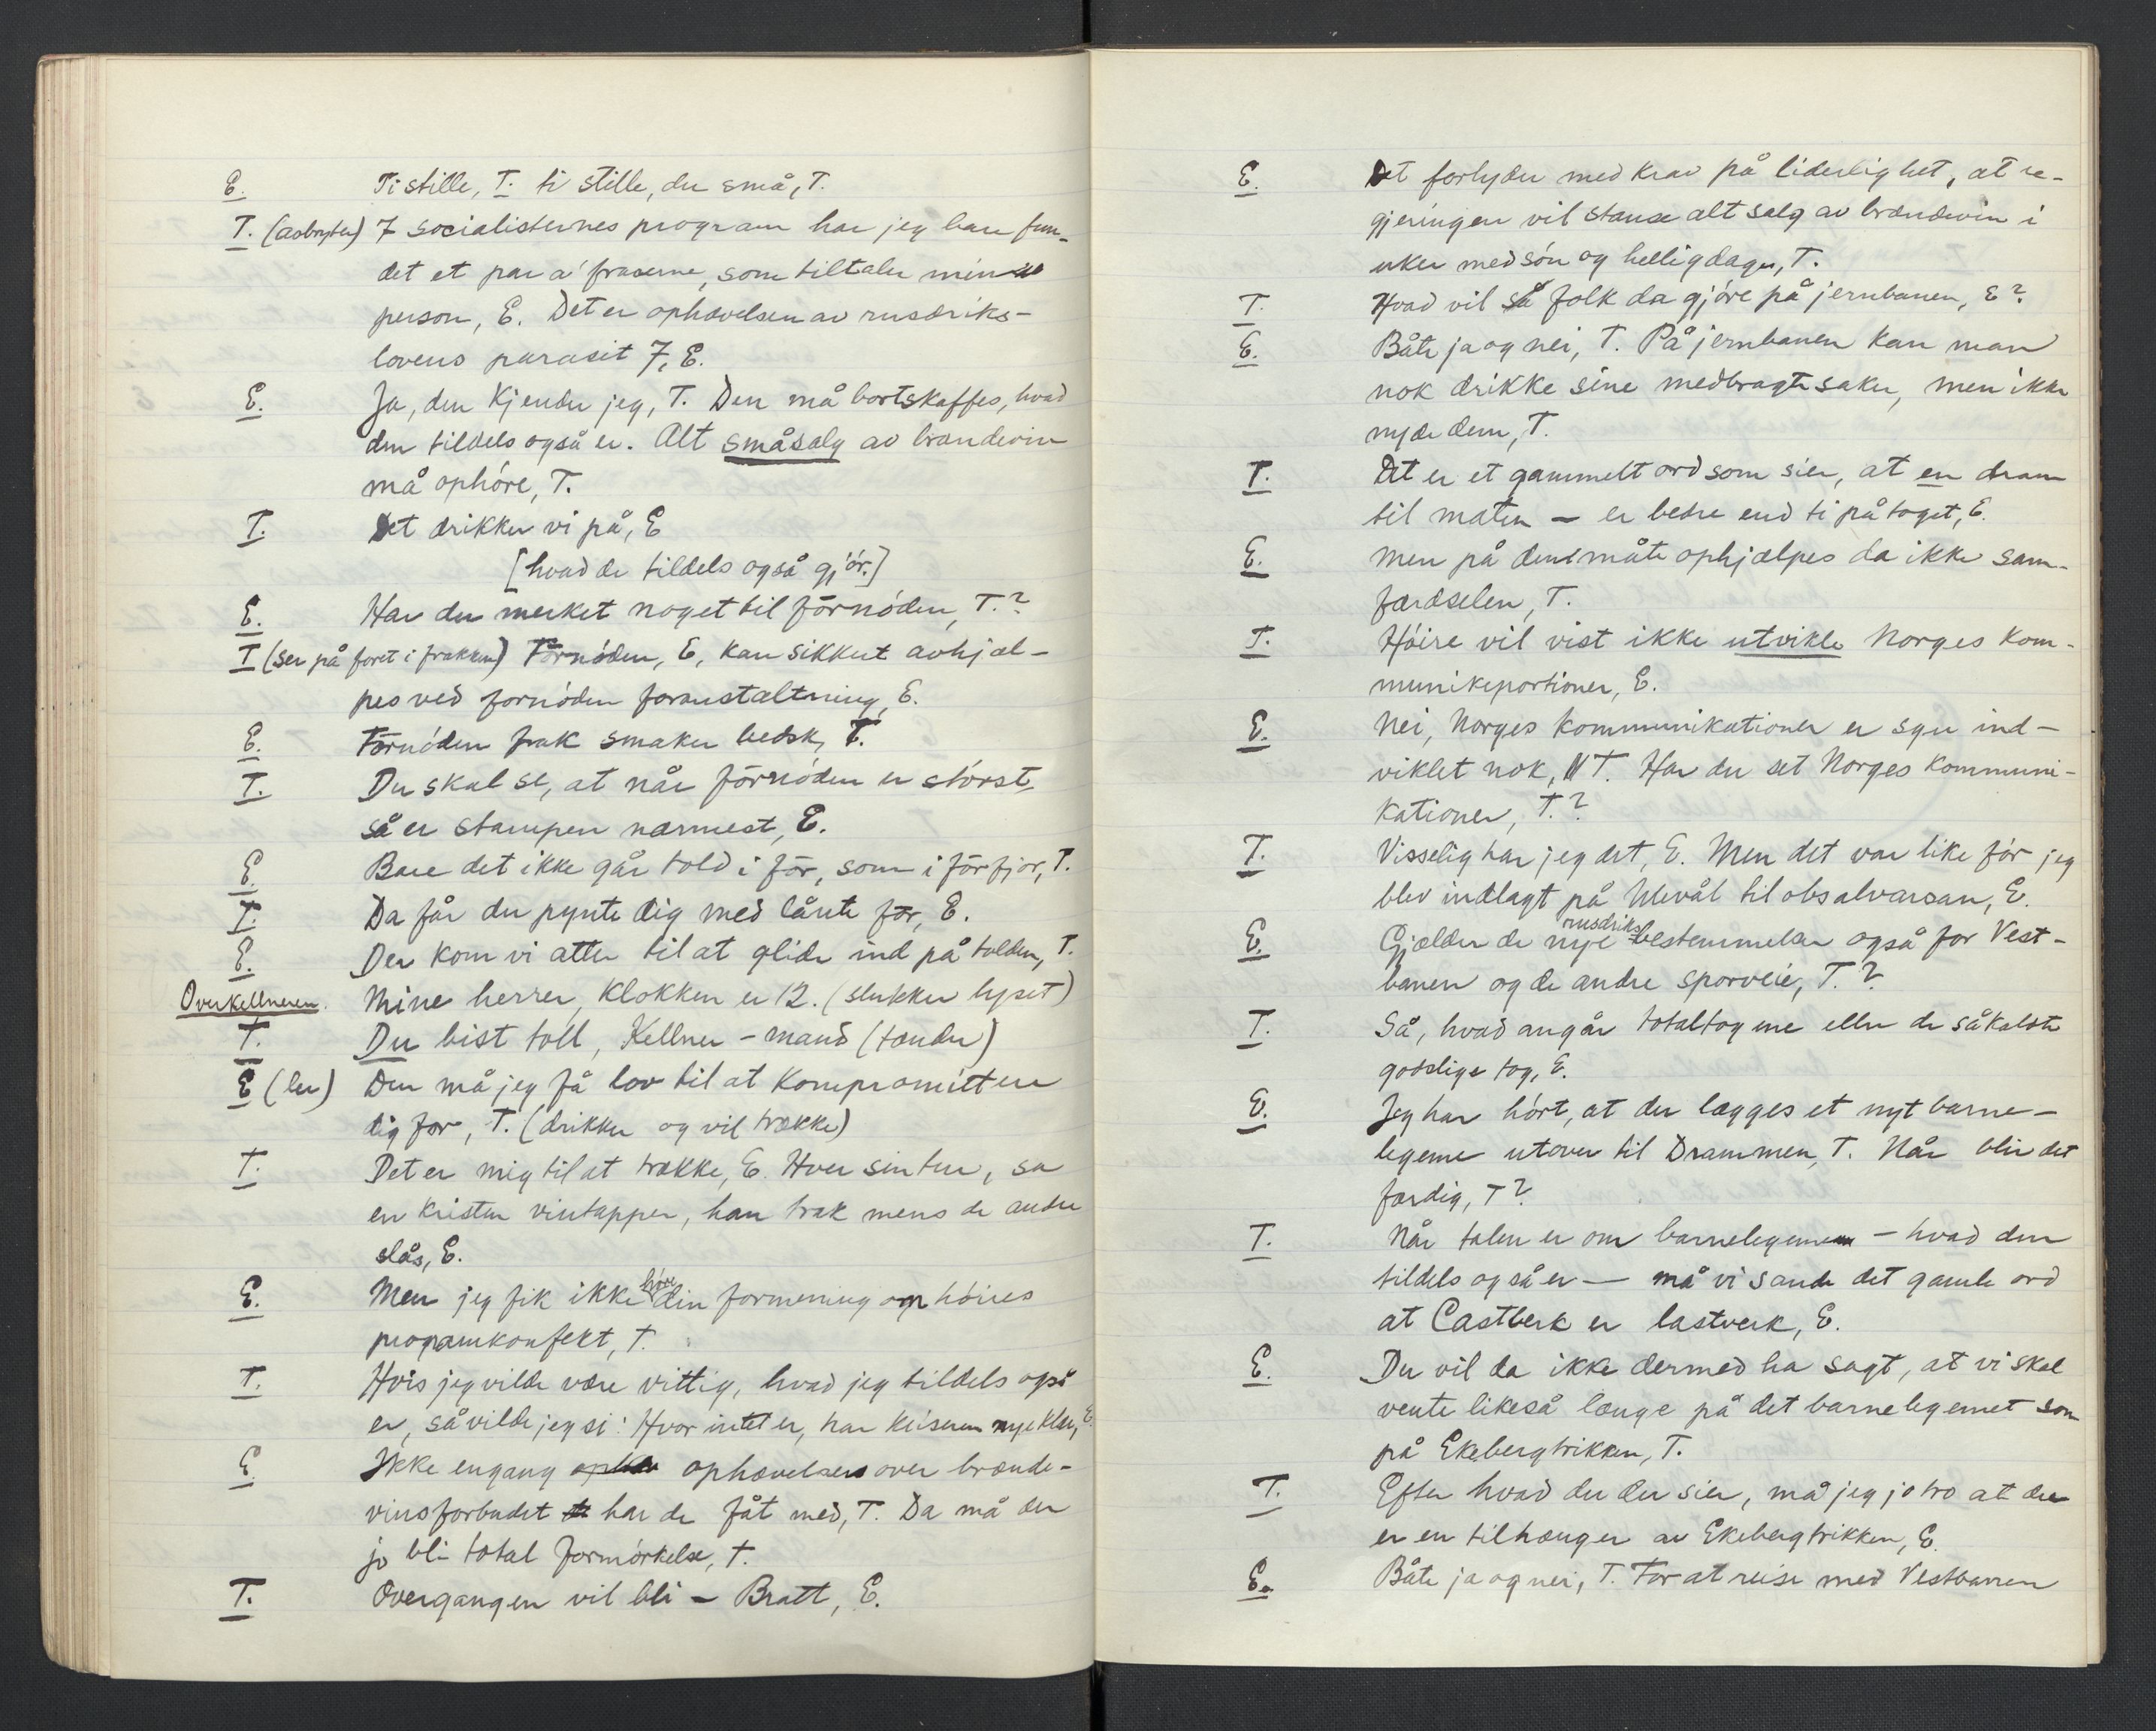 E. Ti stille, T. ti stille, du små, T.
T. (avbryter) I socialisternes program har jeg bare fun-
det et par a' fraserne, som tiltaler min
person, E. Det er ophævelsen av rusdriks-
lovens parasit 7, E.
E. Ja, den kjender jeg, T. Den må bortskaffes, hvad
den tildels også er. Alt småsalg av brændevin
må ophöre, T.
T. Det drikker vi på, E
[hvad de tildels også gjör.]
E. Har du merket noget til förnöden, T.?
T (ser på foret i frakken) Förnöden, E, kan sikkert avhjæl-
pes ved fornöden foranstaltning, E.
E. Förnöden frak smaker bedsk, T.
T. Du skal se, at når förnöden er störst,
så er stampen nærmest, E.
E. Bare det ikke går told i för, som i förfjor, T.
T. Da får du pynte dig med lånte för, E.
E. Der kom vi atter til at glide ind på tolden, T.
Overkellneren. Mine herrer, klokken er 12. (slukker lyset)
T. Du bist toll, Kellner-mand (tænder)
E (ler) Den må jeg få lov til at kompromittere
dig for, T. (drikker og vil trække)
T. Det er mig til at trække, E. Hver sin tur, sa
en kristen vintapper, han trak mens de andre
slås, E.
E. Men jeg fik ikke höre din formening om höires
programkonfekt, T.
T. Hvis jeg vilde være vittig, hvad jeg tildels også
er, så vilde jeg si: Hvor intet er, har keiseren nye klær, E.
E. Ikke engang ophævelsen over brænde-
vinsforbudet har de fåt med, T. Da må der
jo bli total formörkelse, T.
T. Overgangen vil bli - Bratt, E.
E. Det forlyder med krav på liderlighet, at re-
gjeringen vil stanse alt salg av brændevin i
uker med sön og helligdager, T.
T. Hvad vil så folk da gjöre på jernbanen, E?
E. Båte ja og nei, T. På jernbanen kan man
nok drikke sine medbragte saker, men ikke
nyde dem, T.
T. Det er et gammelt ord som sier, at en dram
til maten - er bedre end ti på toget, E.
E. Men på den måte ophjælpes da ikke sam-
færdselen, T.
T. Höire vil vist ikke utvikle Norges kom-
munikeportioner, E.
E. Nei, Norges kommunikationer er sgu ind-
viklet nok, T. Har du set Norges kommuni-
kationer, T.?
T. Visselig har jeg det, E. Men det var like för jeg
blev indlagt på Ulevål til obsalvarsan, E.
E. Gjælder de nye rusdriksbestemmelser også for Vest-
banen og de andre sporveie, T.?
T. Så, hvad angår totaltogene eller de såkaldte
godslige tog, E.
E. Jeg har hört, at der lægges et nyt barne-
legeme utover til Drammen, T. Når blir det
færdig, T?
T. Når talen er om barnelegemer - hvad den
tildels også er - må vi sande det gamle ord
at Castberk er lastverk, E.
E. Du vil da ikke dermed ha sagt, at vi skal
vente likeså længe på det barnelegemet som
på Ekebergtrikken, T.
T. Efter hvad du der sier, må jeg jo tro at du
er en tilhænger av Ekebergtrikken, E.
E. Båte ja og nei, T. For at reise med Vestbanen